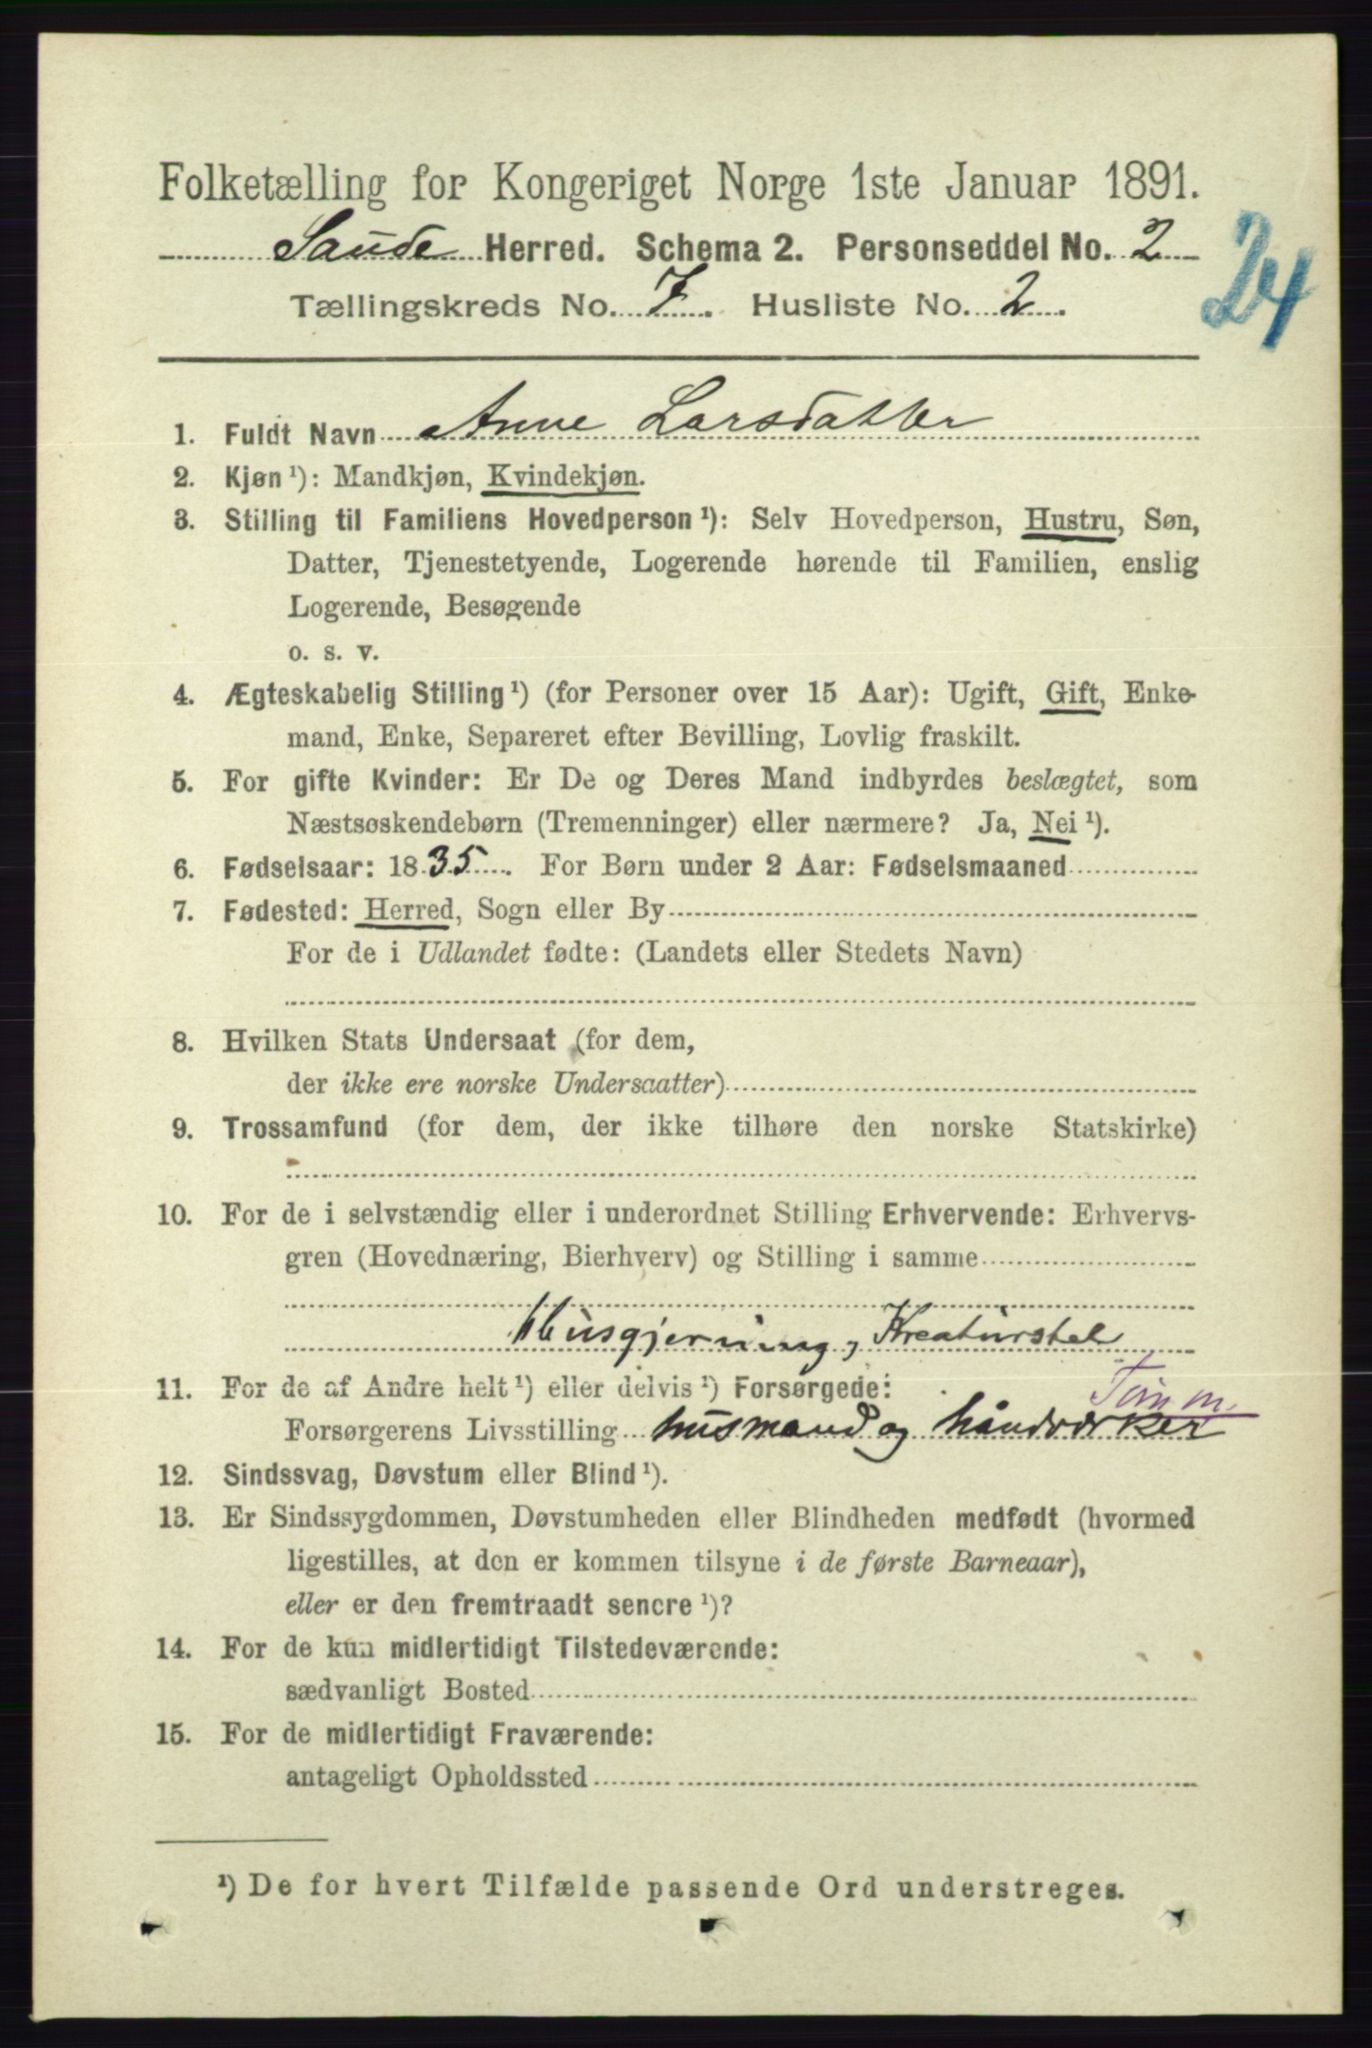 Folketælling for Kongeriget Norge 1ste Januar 1891.
Saude Herred. Schema 2. Personseddel No. 2
24
Tællingskreds No. 7. Husliste No. 2.
1. Fuldt Navn Anne Larsdatter
2. Kjøn ¹): Mandkjøn, Kvindekjøn.
3. Stilling til Familiens Hovedperson ¹): Selv Hovedperson, Hustru, Søn,
Datter, Tjenestetyende, Logerende hørende til Familien, enslig
Logerende, Besøgende
o. s. v.
4. Ægteskabelig Stilling ¹) (for Personer over 15 Aar): Ugift, Gift, Enke-
mand, Enke, Separeret efter Bevilling, Lovlig fraskilt.
5. For gifte Kvinder: Er De og Deres Mand indbyrdes beslægtet, som
Næstsøskendebørn (Tremenninger) eller nærmere? Ja, Nei ¹).
6. Fødselsaar: 1835. For Børn under 2 Aar: Fødselsmaaned
7. Fødested: Herred, Sogn eller By
For de i Udlandet fødte: (Landets eller Stedets Navn)
8. Hvilken Stats Undersaat (for dem,
der ikke ere norske Undersaatter)
9. Trossamfund (for dem, der ikke tilhøre den norske Statskirke)
10. For de i selvstændig eller i underordnet Stilling Erhvervende: Erhvervs-
gren (Hovednæring, Bierhverv) og Stilling i samme
Husgjerning, Kreaturstel
11. For de af Andre helt ¹) eller delvis ¹) Forsørgede:
Tømm.
Forsørgerens Livsstilling husmand og håndværker
12. Sindssvag, Døvstum eller Blind ¹).
13. Er Sindssygdommen, Døvstumheden eller Blindheden medfødt (hvormed
ligestilles, at den er kommen tilsyne i de første Barneaar),
eller er den fremtraadt senere ¹)?
14. For de kun midlertidigt Tilstedeværende:
sædvanligt Bosted
15. For de midlertidigt Fraværende:
antageligt Opholdssted
¹) De for hvert Tilfælde passende Ord understreges.